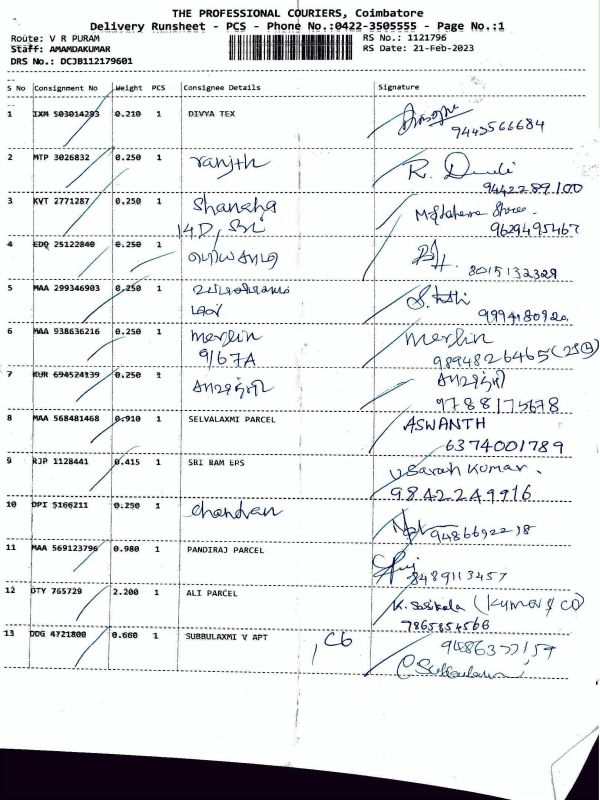 THE PROFESSIONAL COURIERS, Coimbatore
Delivery Runsheet - PCS - Phone No.:0422-3505555 - Page No.:1
Route: V R PURAM
RS No.: 1121796
Staff: AMAMDAKUMAR
RS Date: 21-Feb-2023
DRS No.: DCJB112179601
S No Consignment No Weight PCS Consignee Details Signature
1 IXM 503014283 0.210 1 DIVYA TEX
9443566684
2 MTP 3026832 0.250 1 ranjth R.
9442289100
3 KVT 2771287 0.250 1
14D,
9629495467
4 EDQ 25122840 0.250 1
8015132329
5 MAA 299346903 0.250 1
6 MAA 938636216 0.250 1 merlin merlin
9/67A 9894826465
7 KUR 694524139 0.250 1
9788175678
8 MAA 568481468 0.910 1 SELVALAXMI PARCEL ASWANTH
6374001789
9 RJP 1128441 0.415 1 SRI RAM EPS V Sarath Kumar.
9842249916
10 DPI 5166211 0.250 1 chandran
11 MAA 569123796 0.980 1 PANDIRAJ PARCEL
8489113457
12 OTY 765729 2.200 1 ALI PARCEL K. Sasikala (Kumar & CO)
7865854566
13 DDG 4721800 0.660 1 SUBBULAXMI V APT , C6